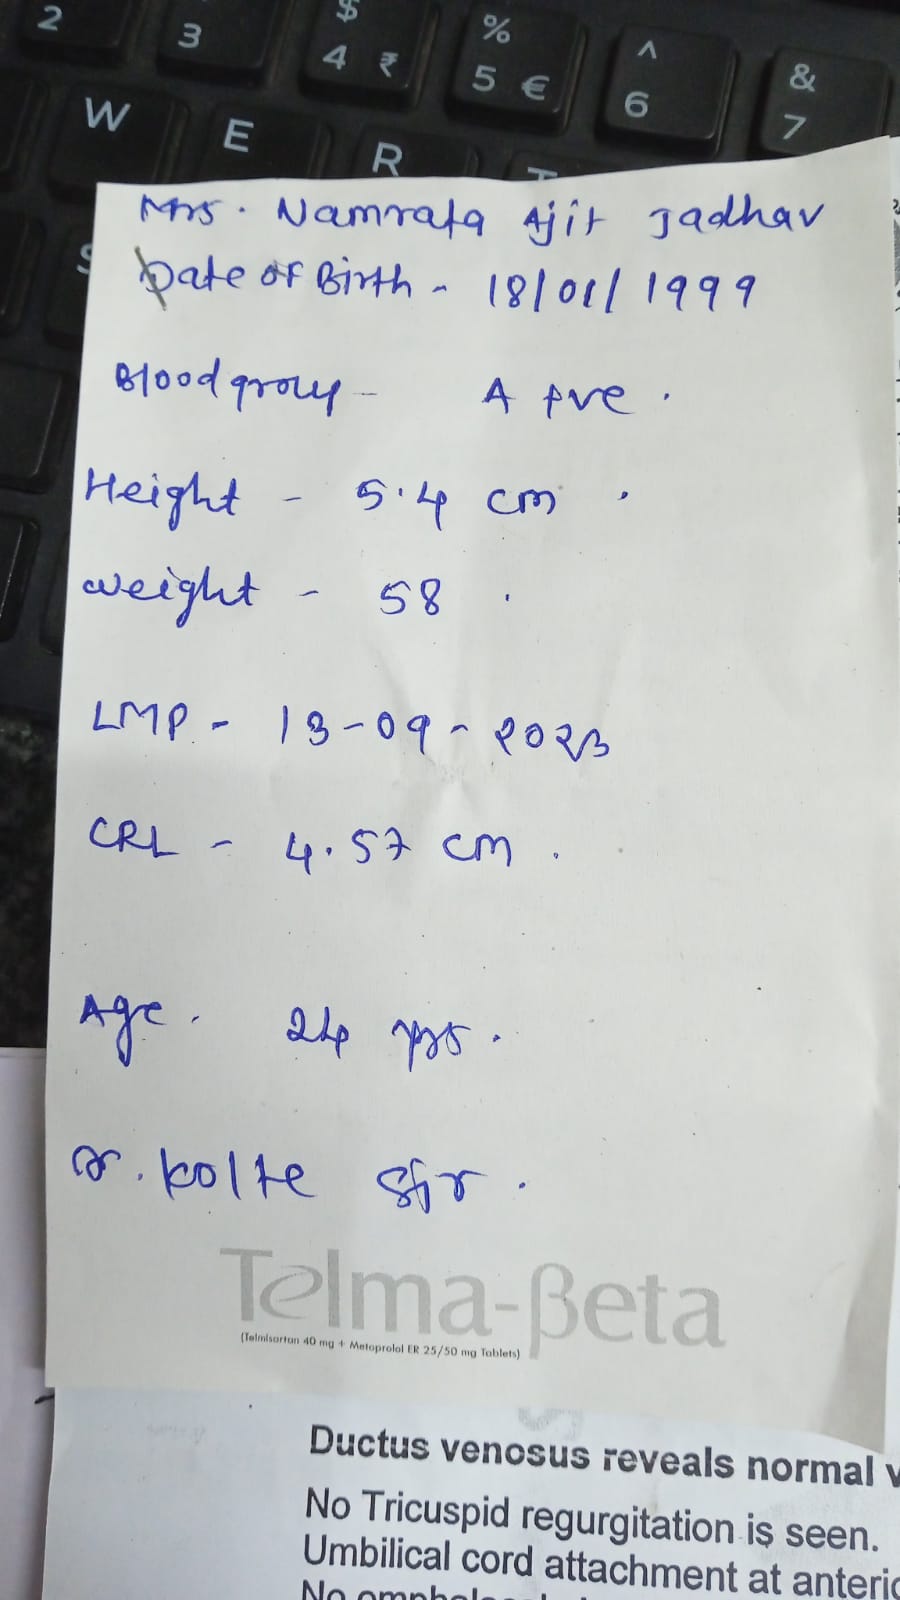 2
3
$
4 ₹
%
5 €
^
6
&
7
W
E
R
Mrs. Namrata Ajit Jadhav
Date of Birth - 18/01/1999
Blood group - A +ve.
Height - 5.4 cm.
weight - 58.
LMP - 13-09-2023
CRL - 4.57 cm.
Age. 24 yrs.
Dr. Kolte Sir.
Telma-βeta
(Telmisartan 40 mg + Metoprolol ER 25/50 mg Tablets)
Ductus venosus reveals normal
No Tricuspid regurgitation is seen.
Umbilical cord attachment at
No